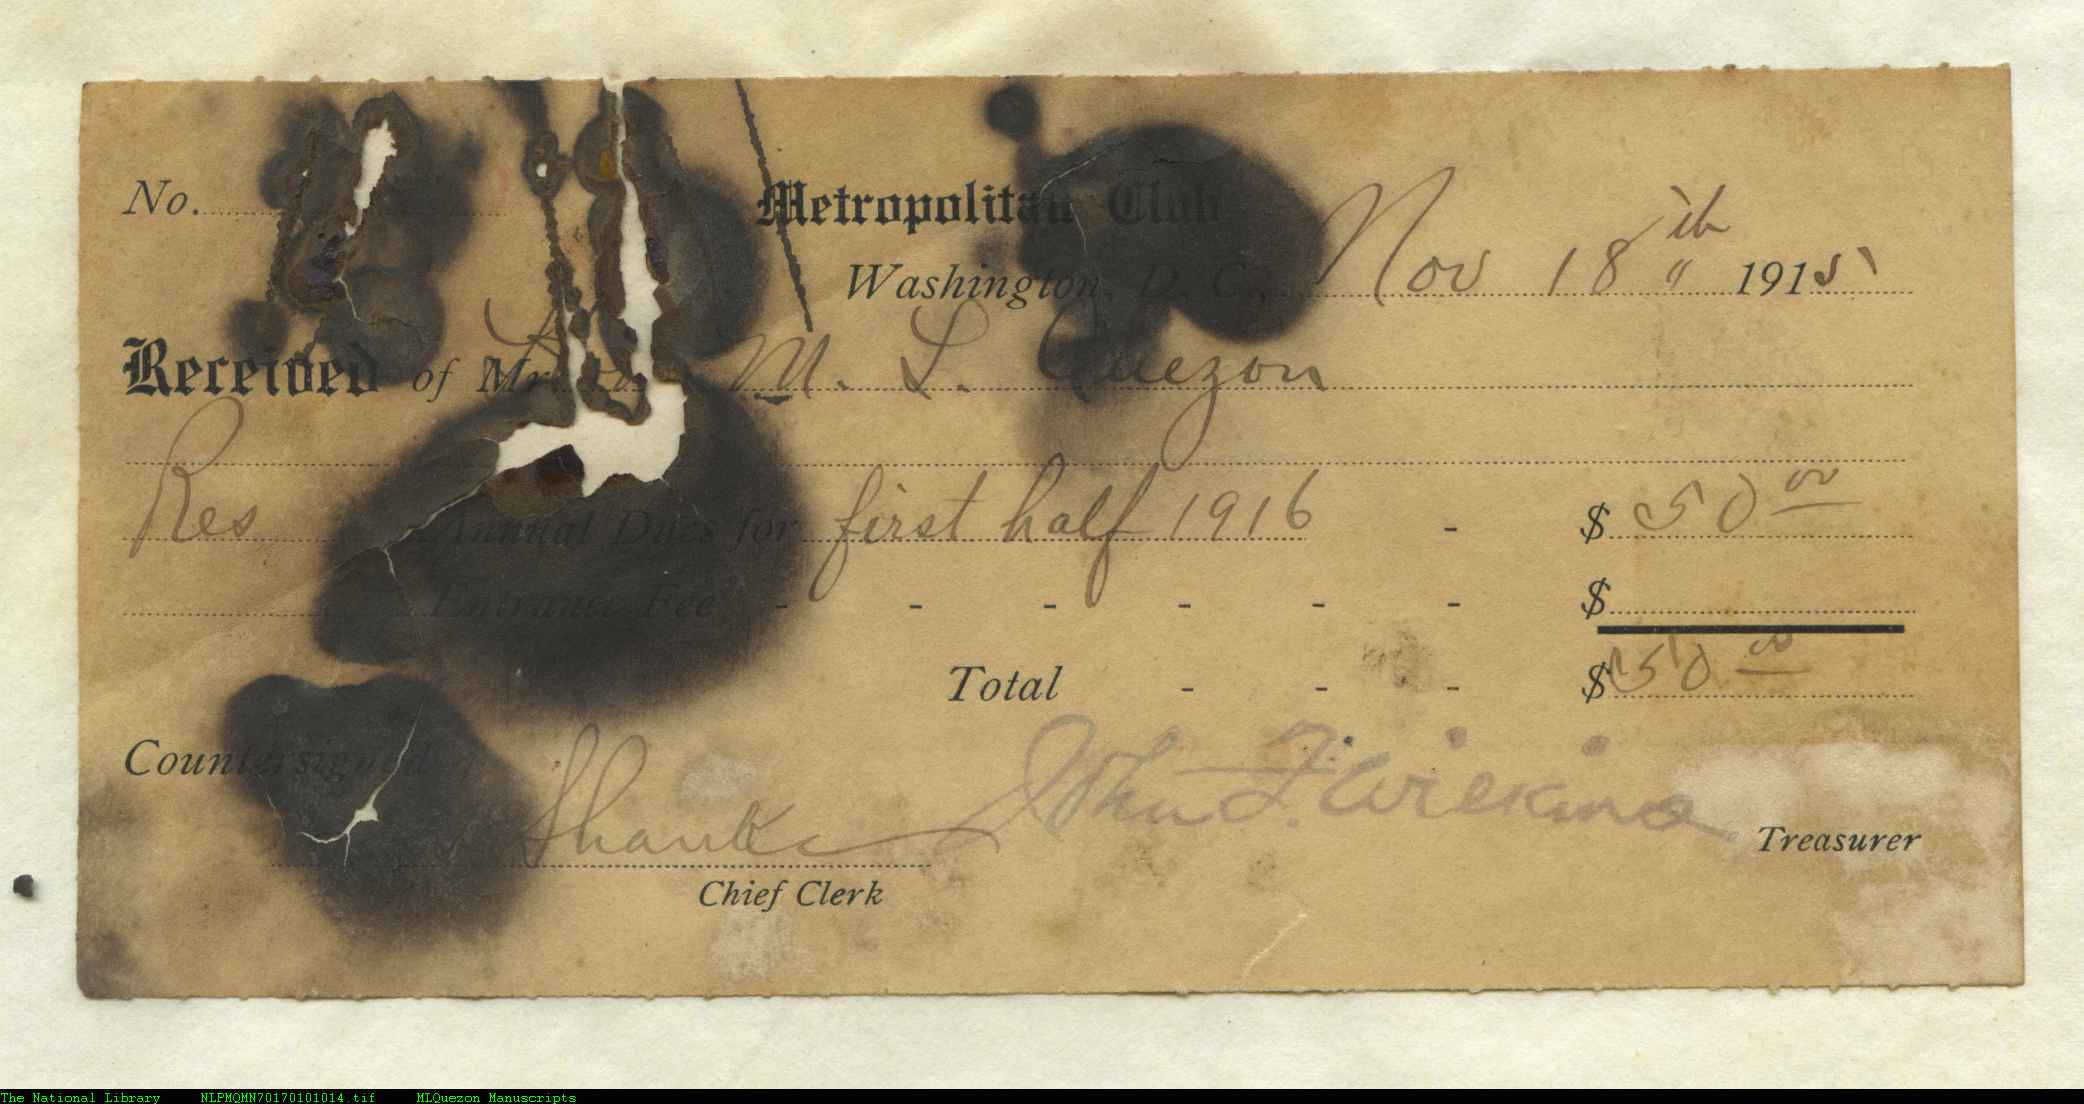 No.
Metropolitan Club
Washington, D. C., Nov 18th 1915
Received of Mr. M. L. Quezon
Res Annual Dues for first half 1916 - $ 50 00
Entrance Fee - - - - - - $
Total - - - $ 50 00
Countersigned
Shanks John F. Wilkins Treasurer
Chief Clerk
The National Library NLPMQMN70170101014.tif MLQuezon Manuscripts